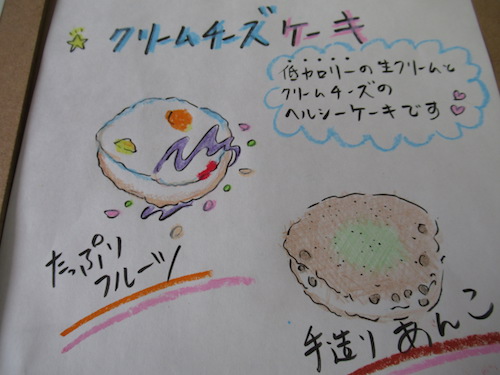 クリームチーズケーキ
低カロリーの生クリームと
クリームチーズの
ヘルシーケーキです
たっぷり
フルーツ
手造りあんこ